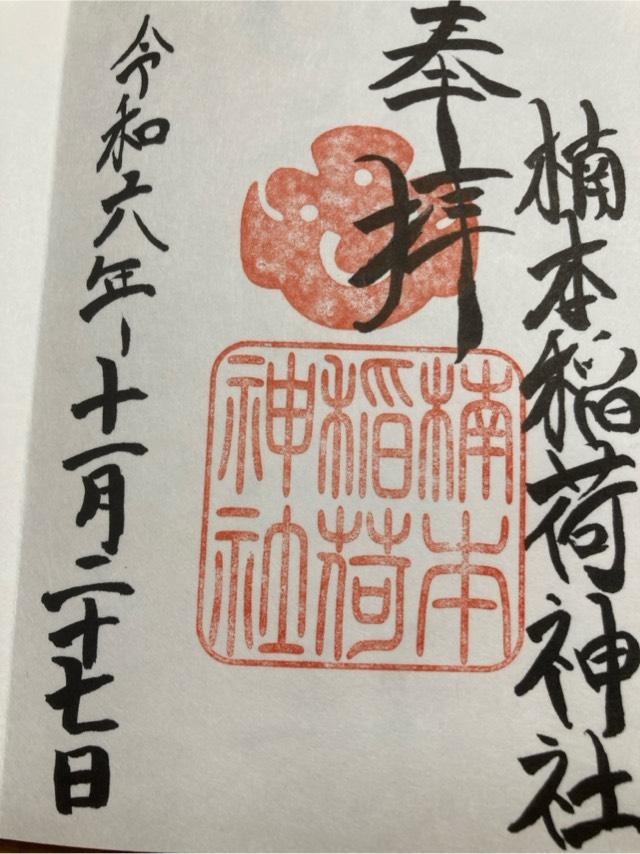 楠本稲荷神社
奉拝
楠本
稲荷
神社
令和六年十一月二十七日